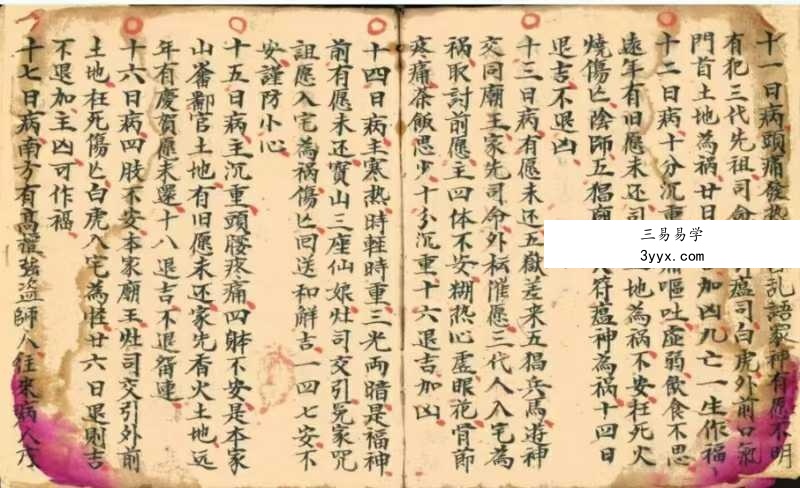 十一日病頭痛發热乱語家神有愿不明
有犯三代先祖司命引瘟司白虎外前口氣
門首土地為禍廿日加凶九亡一生作福
十二日病十分沉重痛嘔吐虛弱飲食不思
遠年有旧愿未还司土地為禍不安枉死火
燒傷亡陰師五猖廟符瘟神為禍十四日
退吉不退凶
十三日病有愿未还五嶽差来五猖兵馬遊神
交同廟王家先司命外坛催愿三代人入宅為
禍取討前愿主四体不安糊热心虛眼花骨節
疼痛茶飯思少十分沉重十六退吉加凶
十四日病主寒热時軽時重三光両暗是福神
前有愿未还寶山三座仙娘灶司交引冤家咒
詛愿入宅為禍傷亡回送和解吉一四七安不
安謹防小心
十五日病主沉重頭腰疼痛四躰不安是本家
山峯鄱官土地有旧愿未还家先香火土地远
年有慶賀愿未還十八退吉不退留連
十六日病四肢不安本家廟王灶司交引外前
土地枉死傷亡白虎入宅為怪廿六日退則吉
不退加主凶可作福
十七日病南方有高強盗師人往来病人
三易易学
3yyx.com